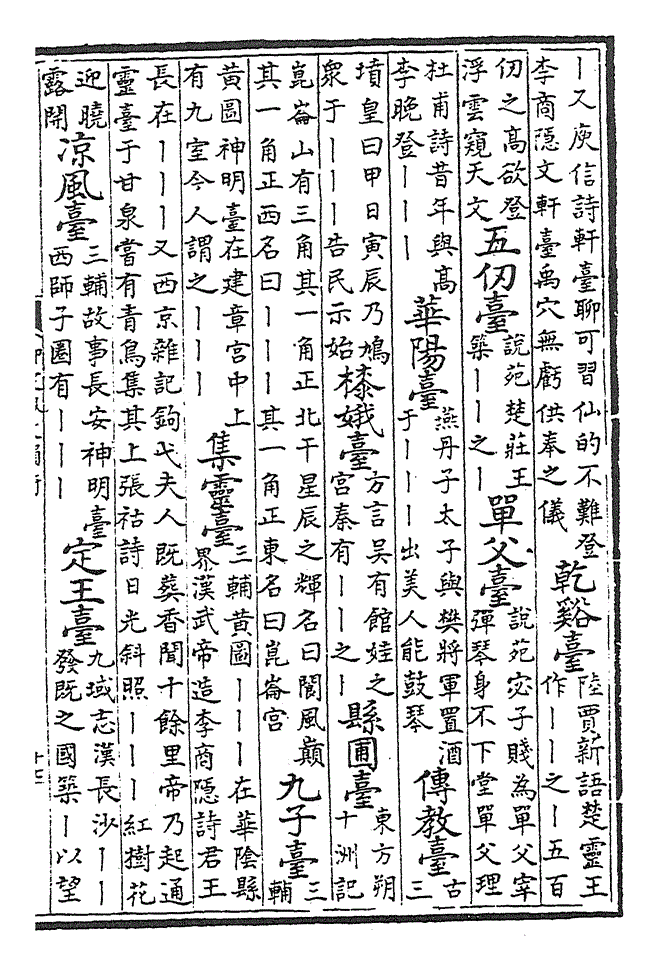 丨又庾信詩軒臺聊可習仙的不難登
李商隱文軒臺禹穴無虧供奉之儀
乾谿臺
陸賈新語楚靈王
作丨丨之丨五百
仞之高欲登
浮雲窺天文
五仞臺
說苑楚莊王
築丨丨之丨
單父臺
說苑宓子賤為單父宰
彈琴身不下堂單父理
杜甫詩昔年與高
李晚登丨丨丨
華陽臺
燕丹子太子與樊將軍置酒
于丨丨丨出美人能鼓琴
傳教臺
古
三
墳皇曰甲日寅辰乃鳩
衆于丨丨丨告民示始
㯃娥臺
方言吳有館娃之
宮秦有丨丨之丨
縣圃臺
東方朔
十洲記
崑崙山有三角其一角正北干星辰之輝名曰閬風巔
其一角正西名曰丨丨丨其一角正東名曰崑崙宮
九子臺
三
輔
黃圖神明臺在建章宮中上
有九室今人謂之丨丨丨
集靈臺
三輔黃圖丨丨丨在華陰縣
界漢武帝造李商隱詩君王
長在丨丨丨又西京雜記鉤弋夫人既葬香聞十餘里帝乃起通
靈臺于甘泉嘗有青鳥集其上張祜詩日光斜照丨丨丨紅樹花
迎曉
露開
凉風臺
三輔故事長安神明臺
西師子圈有丨丨丨
定王臺
九域志漢長沙丨丨
發既之國築丨以望